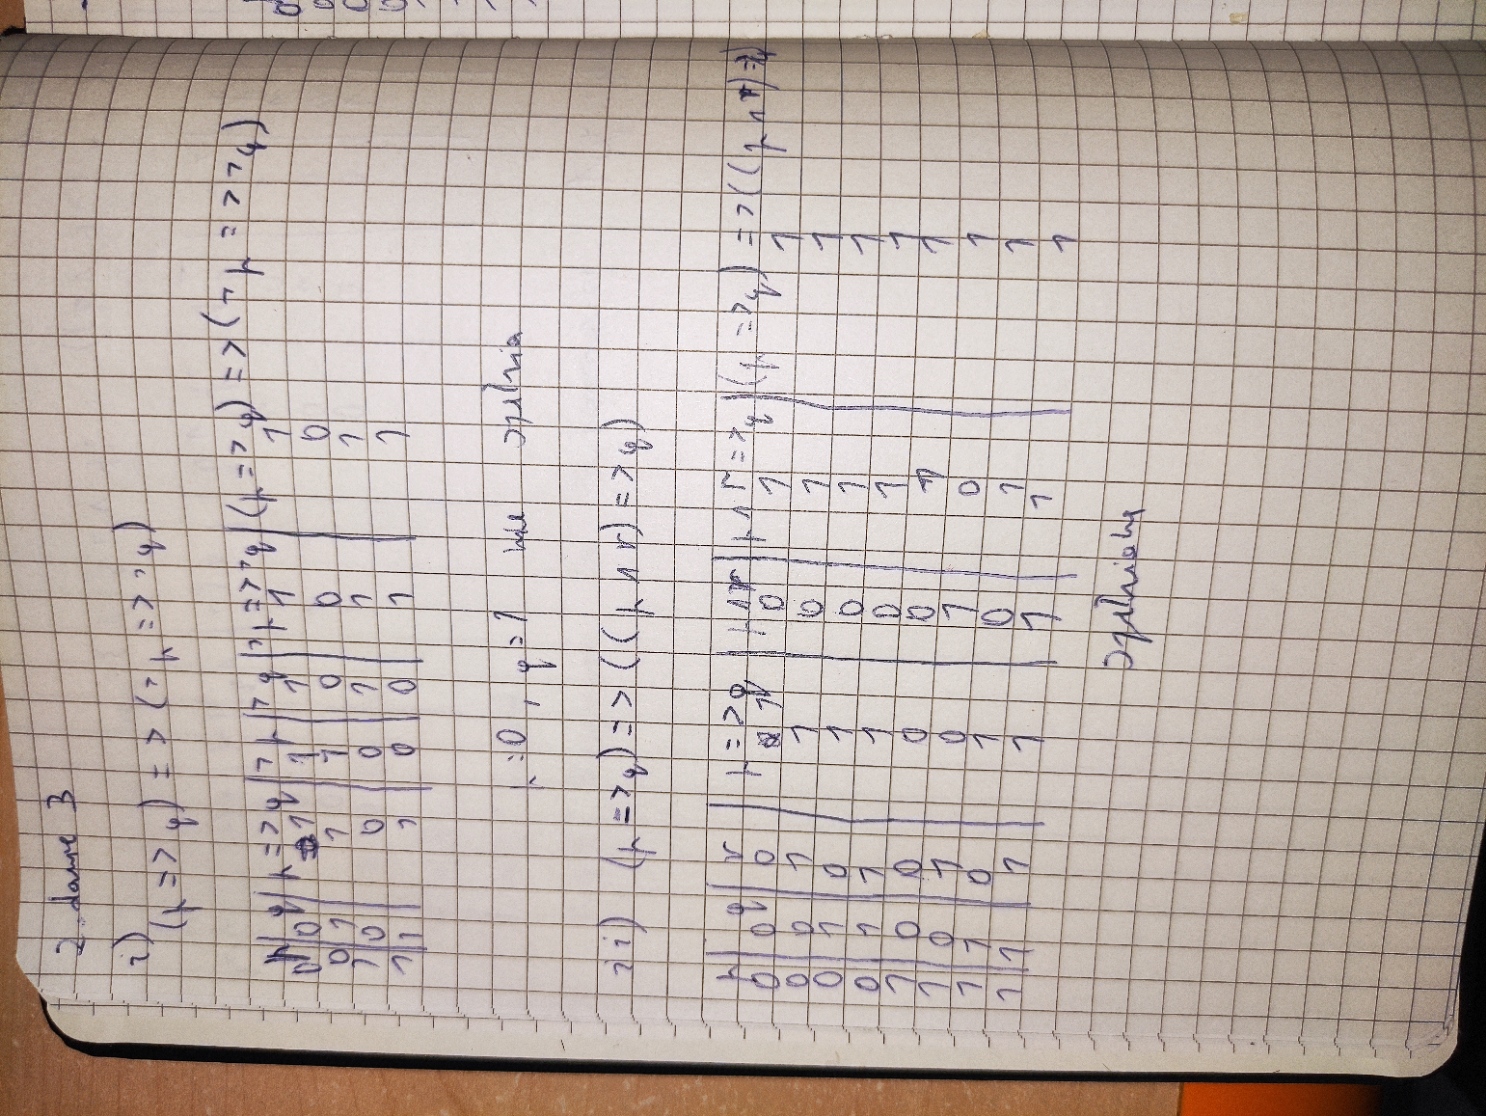 Zadanie 3
i)
(p => q) => (¬p => ¬q)
p | q | p => q | ¬p | ¬q | ¬p => ¬q | (p => q) => (¬p => ¬q)
0 | 0 | 1 | 1 | 1 | 1 | 1
0 | 1 | 1 | 1 | 0 | 0 | 0
1 | 0 | 0 | 0 | 1 | 1 | 1
1 | 1 | 1 | 0 | 0 | 1 | 1
p=0, q=1 nie spełnia
ii) (p => q) => ((p ∧ r) => q)
p | q | r | p => q | p ∧ r | p ∧ r => q | (p => q) => ((p ∧ r) => q)
0 | 0 | 0 | 1 | 0 | 1 | 1
0 | 0 | 1 | 1 | 0 | 1 | 1
0 | 1 | 0 | 1 | 0 | 1 | 1
0 | 1 | 1 | 1 | 0 | 1 | 1
1 | 0 | 0 | 0 | 0 | 1 | 1
1 | 0 | 1 | 0 | 1 | 0 | 1
1 | 1 | 0 | 1 | 0 | 1 | 1
1 | 1 | 1 | 1 | 1 | 1 | 1
spełniona